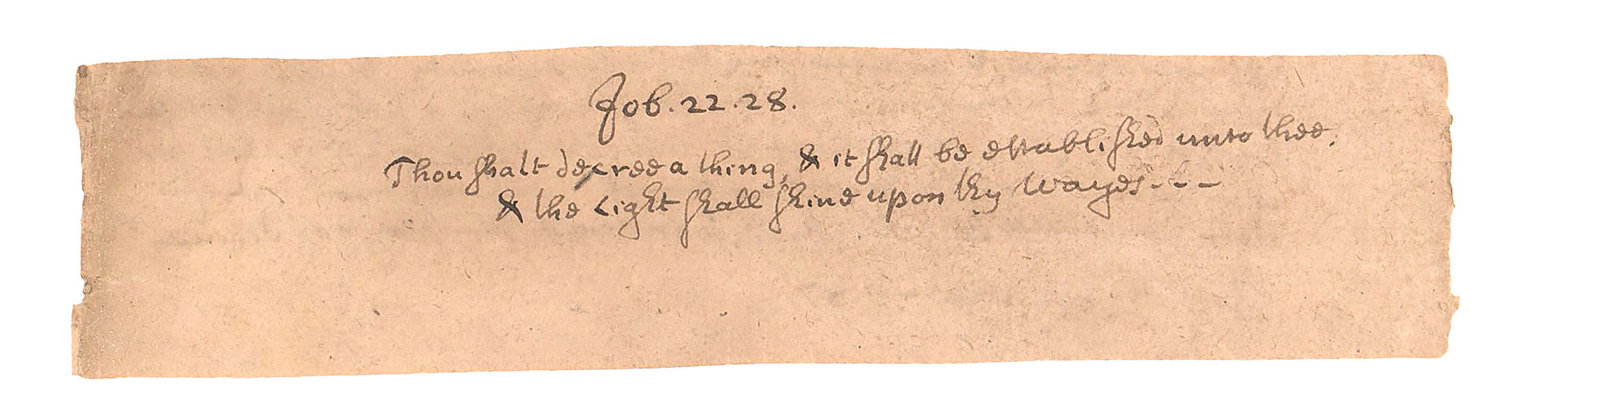 Job. 22. 28.
Thou shalt decree a thing, & it shall be established unto thee.
& the Light shall shine upon thy wayes - - -